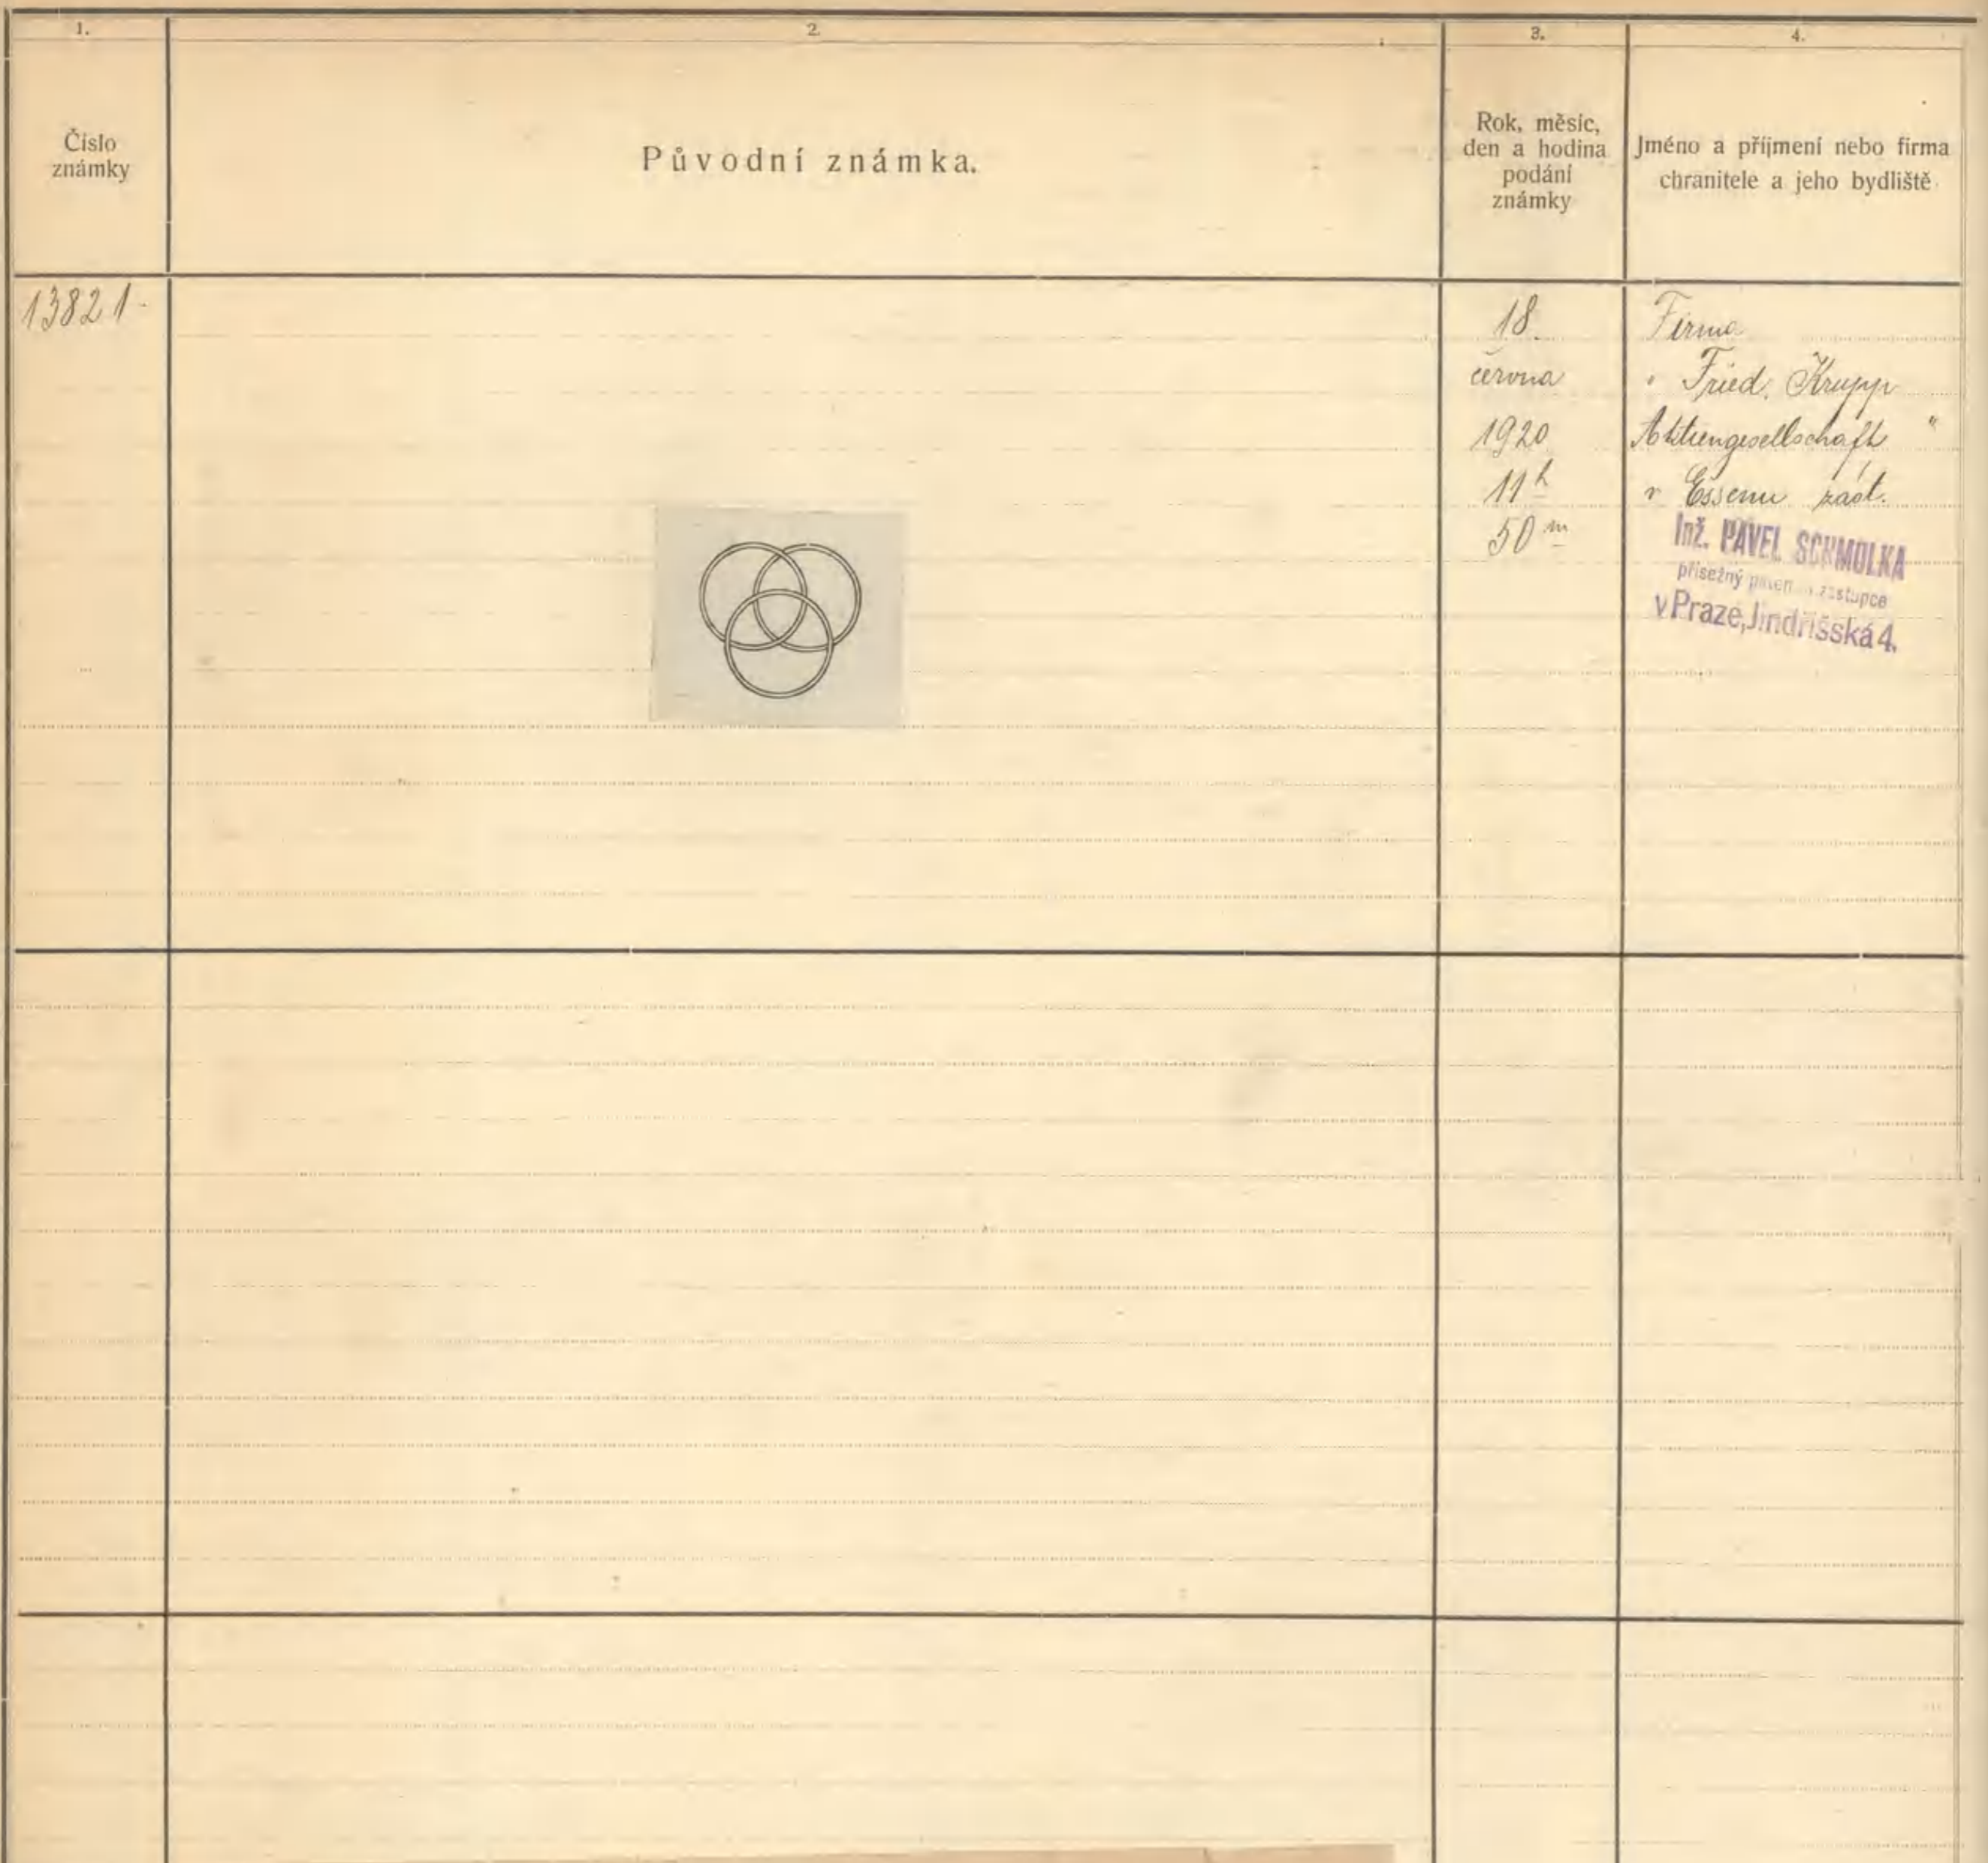 1.
2.
3.
4.
Číslo
známky
Původní známka.
Rok, měsíc,
den a hodina
podání
známky
Jméno a příjmení nebo firma
chranitele a jeho bydliště
13821-
18.
června
1920
11h
50m
Firma
„Fried. Krupp
Aktiengesellschaft"
v Essenu zást.
Inž. PAVEL SCHMOLKA
přísežný zástupce
v Praze, Jindřišská 4.